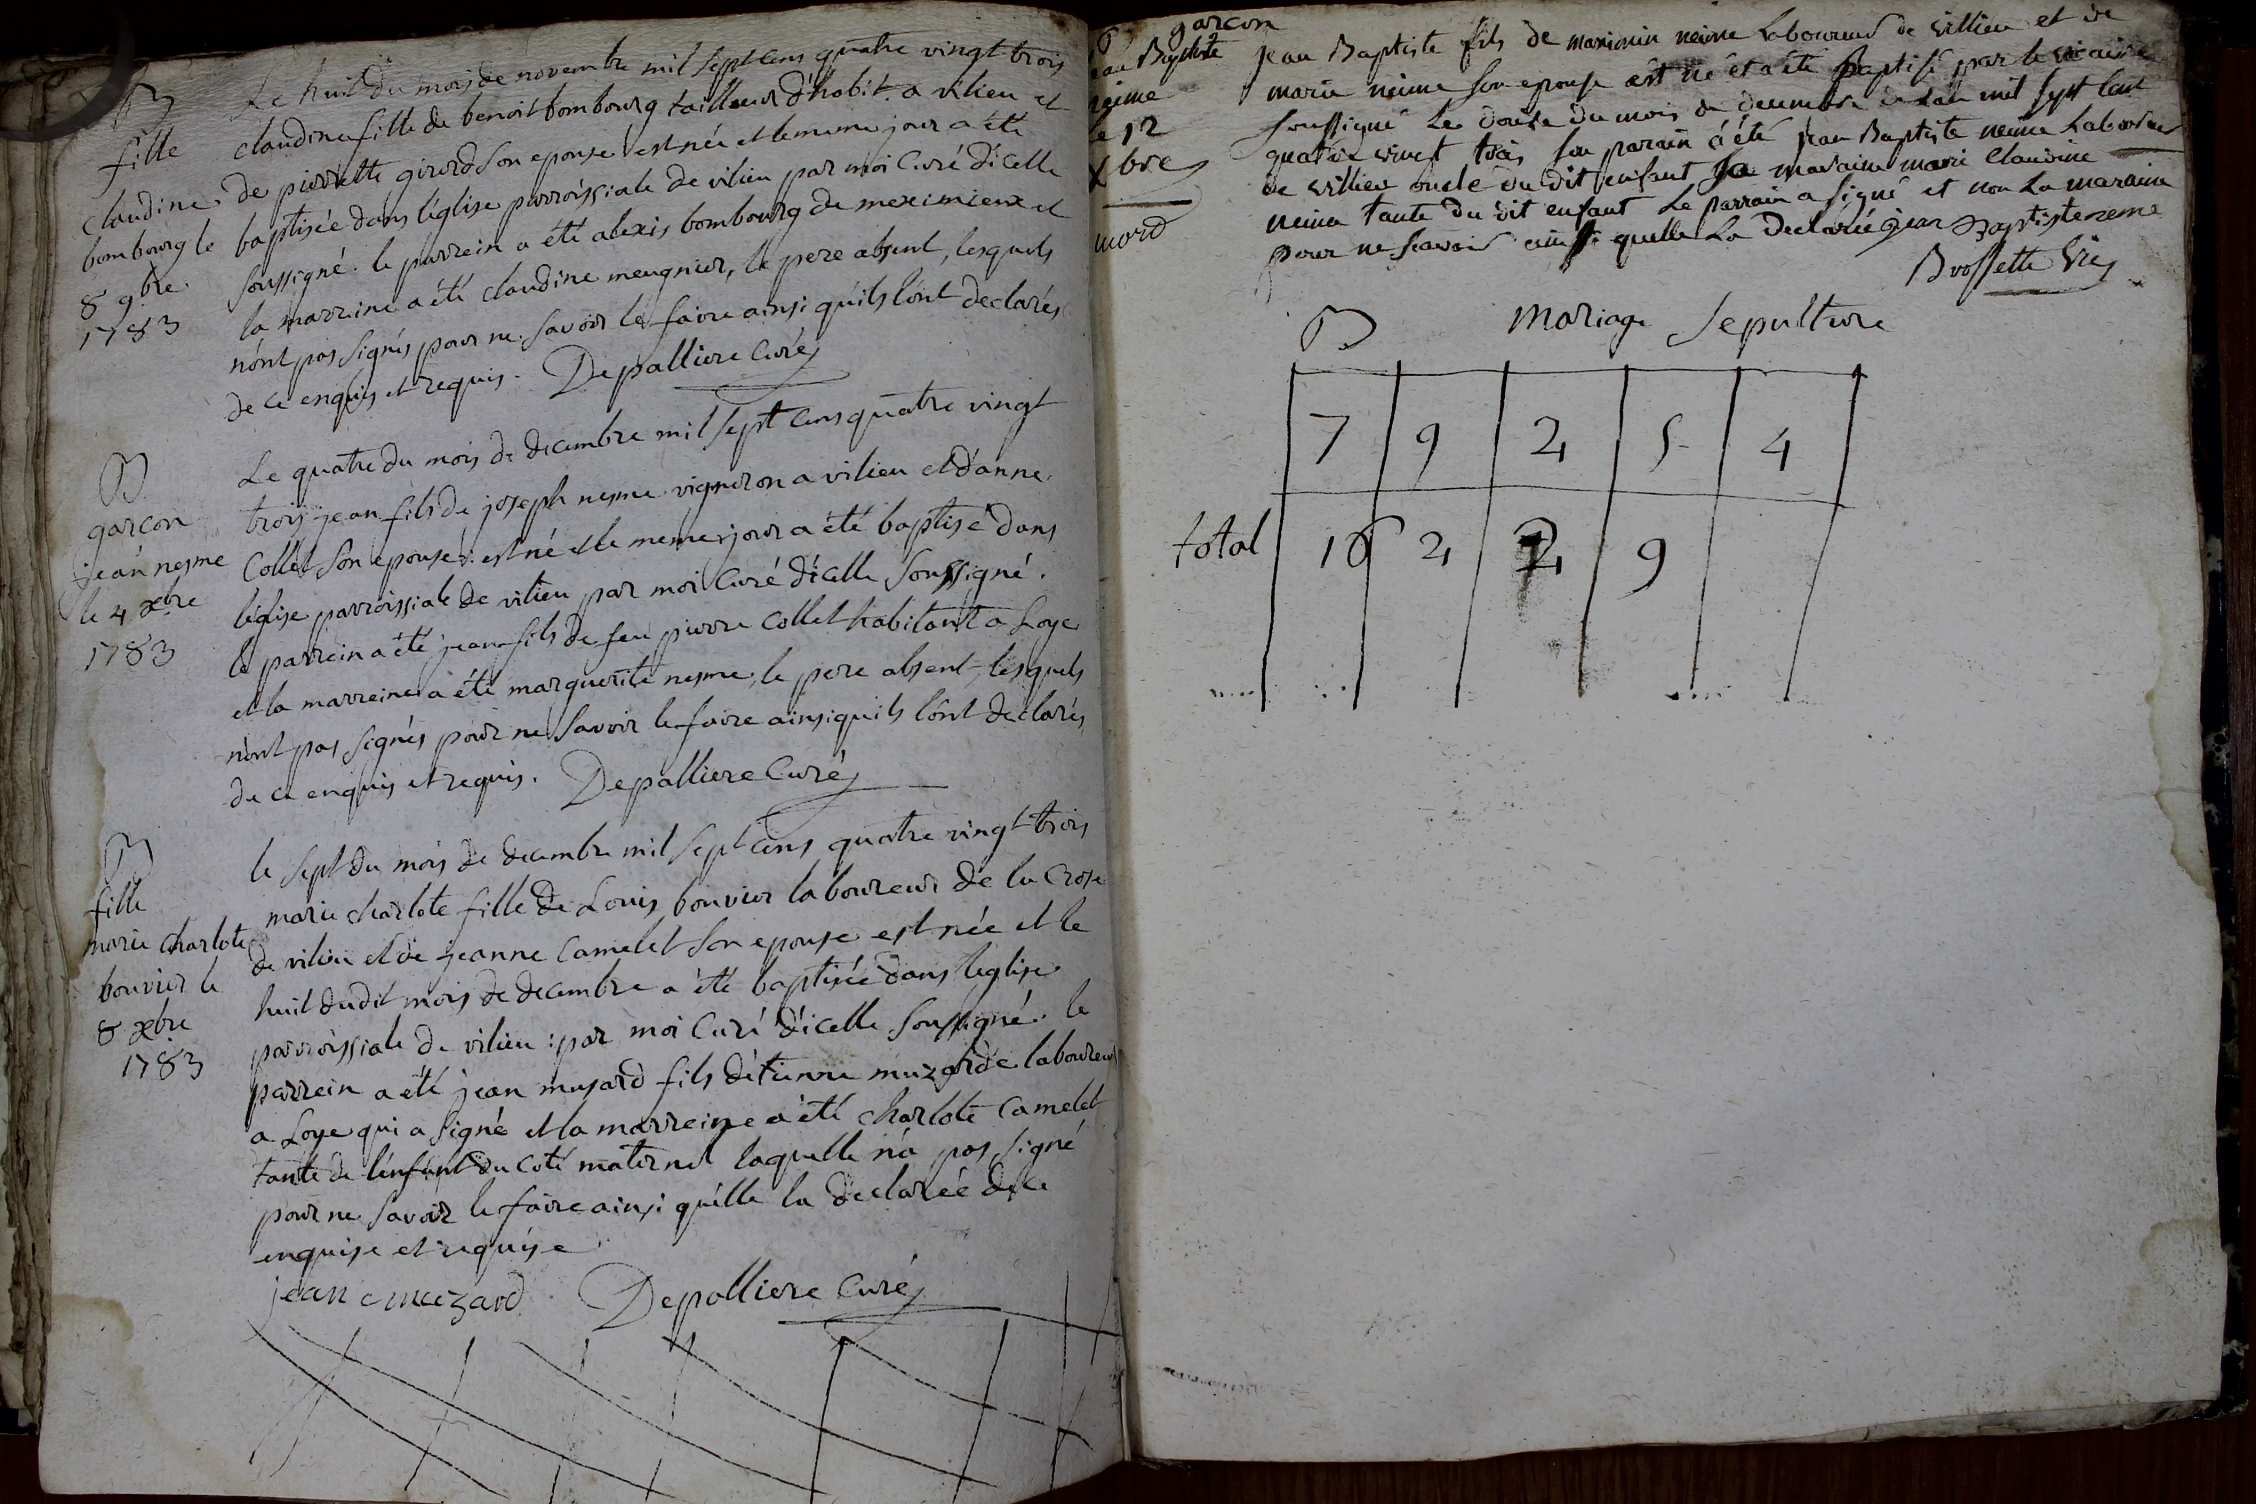 B
fille
claudine
bombourg le
8 9.bre
1783
Le huit du mois de novembre mil sept cens quatre vingt trois
claudine fille de benoit bombourg tailleur d'habit a vilieu et
de pierrette girord son epouse est née et le meme jour a été
baptisée dans l'église parroissiale de vilieu par moi Curé d'icelle
soussigné. le parrein a été alexis bombourg de meximieux et
la marreine a été claudine meugnier, le pere absent, lesquels
n'ont pas signés pour ne savoir le faire ainsi qu'ils l'ont declarés
de ce enquis et requis. Depalliere Curé
B
garcon
jean nesme
le 4 xbre
1783
Le quatre du mois de decembre mil sept cens quatre vingt
trois jean fils de joseph nesme vigneron a vilieu et d'anne
Collet son epouse : est né et le meme jour a été baptisé dans
l'église parroissiale de vilieu par moi Curé d'icelle soussigné.
le parrein a été jean fils de feu pierre Collet habitant a Loye
et la marreine a été marguerite nesme, le pere absent, lesquels
n'ont pas signés pour ne savoir le faire ainsi quils l'ont declarés
de ce enquis et requis. Depalliere Curé
B
fille
marie charlote
bouvier le
8 xbre
1783
le sept du mois de decembre mil sept cens quatre vingt trois
marie charlote fille de Louis bouvier laboureur de la Crose
de vilieu et de jeanne Camelet son epouse est née et le
huit dudit mois de decembre a été baptisée dans l'eglise
parroissiale de vilieu : par moi Curé d'icelle soussigné. le
parrein a été jean musard fils d'étienne muzard laboureur
a Loye qui a signé et la marreine a été charlote Camelet
tante de l'enfant du coté maternel laquelle n'a pas signé
pour ne savoir le faire ainsi qu'elle la declarée de ce
enquise et requise
jean muzard Depalliere Curé
B garcon
jean Baptiste
neime
le 12
Xbre
mord
jean Baptiste fils de neime Laboureur de villieu et de
marie neime son epouse est né et a été Baptisé par le vicaire
soussigné Le douse du mois de decembre de Lan mil sept cent
quatre vingt trois son parain a été jean Baptiste neime Laboureur
de villieu oncle du dit enfant sa maraine marie Claudine
neime tante du dit enfant Le parrain a signé et non La maraine
pour ne scavoir ainsi quelle La Declarée jean Baptiste neme
Brossette Vic
B Mariage Sepulture
7 9 2 5 4
total 16 2 9